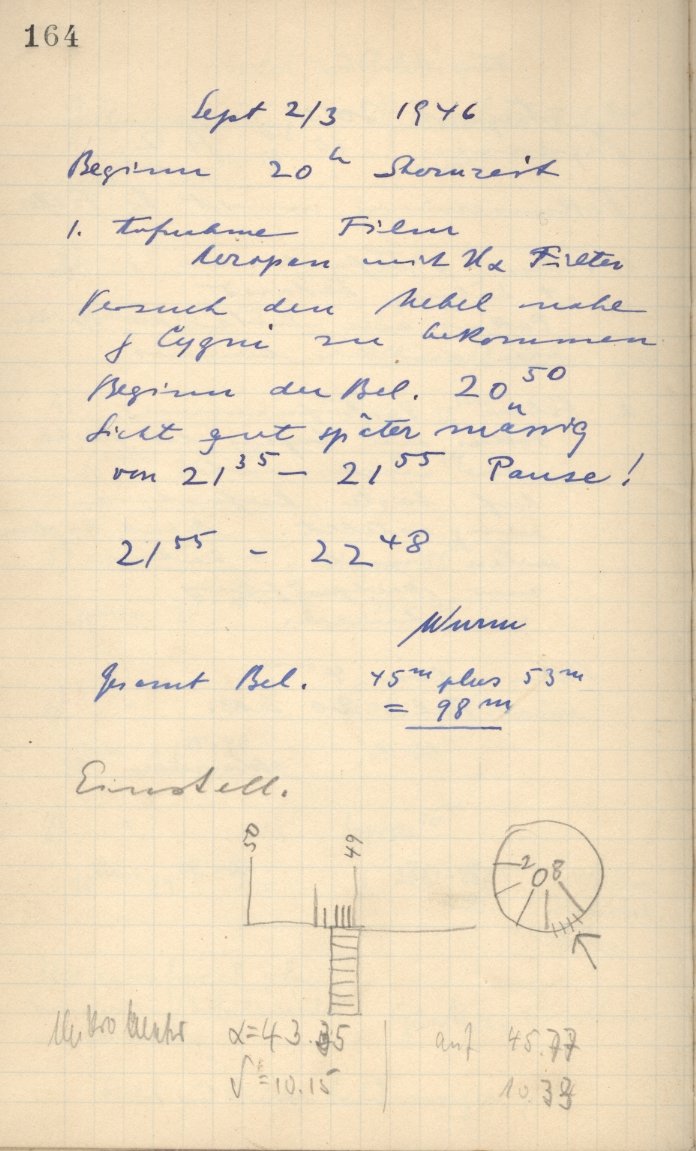 164
Sept 2/3 1946
Beginn 20ʰ Sternzeit
1. Aufnahme Film
Aeropan mit Hα Filter
Versuch den Nebel nahe
γ Cygni zu bekommen
Beginn der Bel. 20⁵⁰
Sicht gut später mässig
von 21³⁵ – 21⁵⁵ Pause!
21⁵⁵ – 22⁴⁸
Wurm
Gesamt Bel. 45ᵐ plus 53ᵐ
= 98ᵐ
Einstell.
50 49
2 0 8
α = 43.35 auf 45.77
= 10.15 10.33